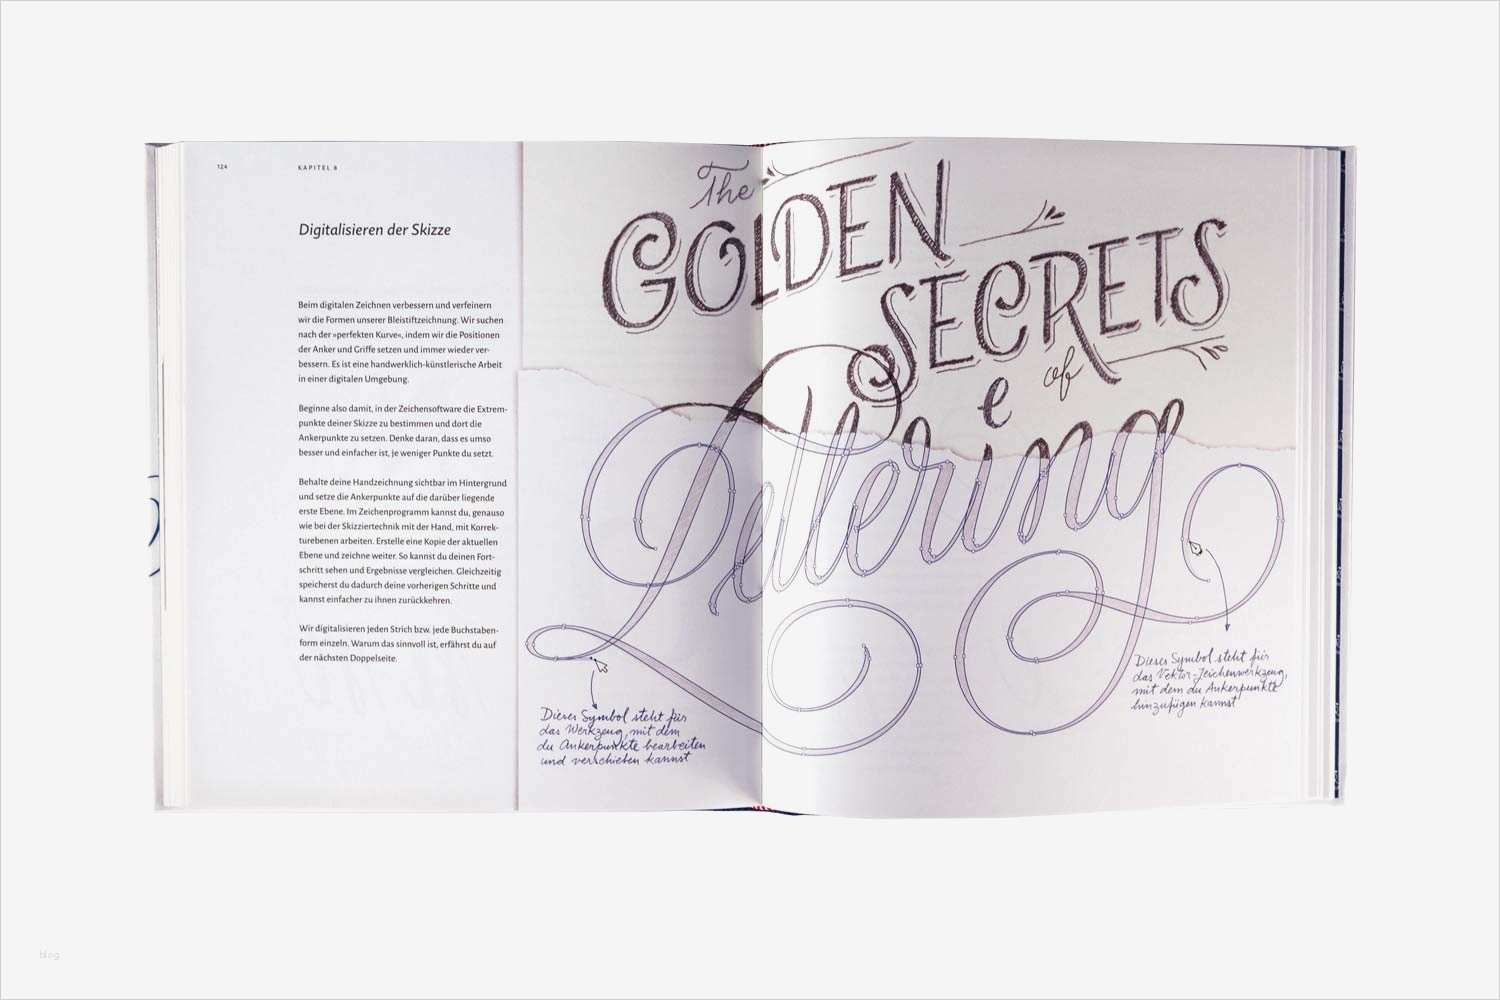 124
KAPITEL 8
Digitalisieren der Skizze
Beim digitalen Zeichnen verbessern und verfeinern
wir die Formen unserer Bleistiftzeichnung. Wir suchen
nach der »perfekten Kurve«, indem wir die Positionen
der Anker und Griffe setzen und immer wieder ver-
bessern. Es ist eine handwerklich-künstlerische Arbeit
in einer digitalen Umgebung.
Beginne also damit, in der Zeichensoftware die Extrem-
punkte deiner Skizze zu bestimmen und dort die
Ankerpunkte zu setzen. Denke daran, dass es umso
besser und einfacher ist, je weniger Punkte du setzt.
Behalte deine Handzeichnung sichtbar im Hintergrund
und setze die Ankerpunkte auf die darüber liegende
erste Ebene. Im Zeichenprogramm kannst du, genauso
wie bei der Skizziertechnik mit der Hand, mit Korrek-
turebenen arbeiten. Erstelle eine Kopie der aktuellen
Ebene und zeichne weiter. So kannst du deinen Fort-
schritt sehen und Ergebnisse vergleichen. Gleichzeitig
speicherst du dadurch deine vorherigen Schritte und
kannst einfacher zu ihnen zurückkehren.
Wir digitalisieren jeden Strich bzw. jede Buchstaben-
form einzeln. Warum das sinnvoll ist, erfährst du auf
der nächsten Doppelseite.
The
GOLDEN
SECRETS
of
e
Lettering
Dieses Symbol steht für
das Werkzeug, mit dem
du Ankerpunkte bearbeiten
und verschieben kannst
Dieses Symbol steht für
das Vektor-Zeichenwerkzeug,
mit dem du Ankerpunkte
hinzufügen kannst
blog